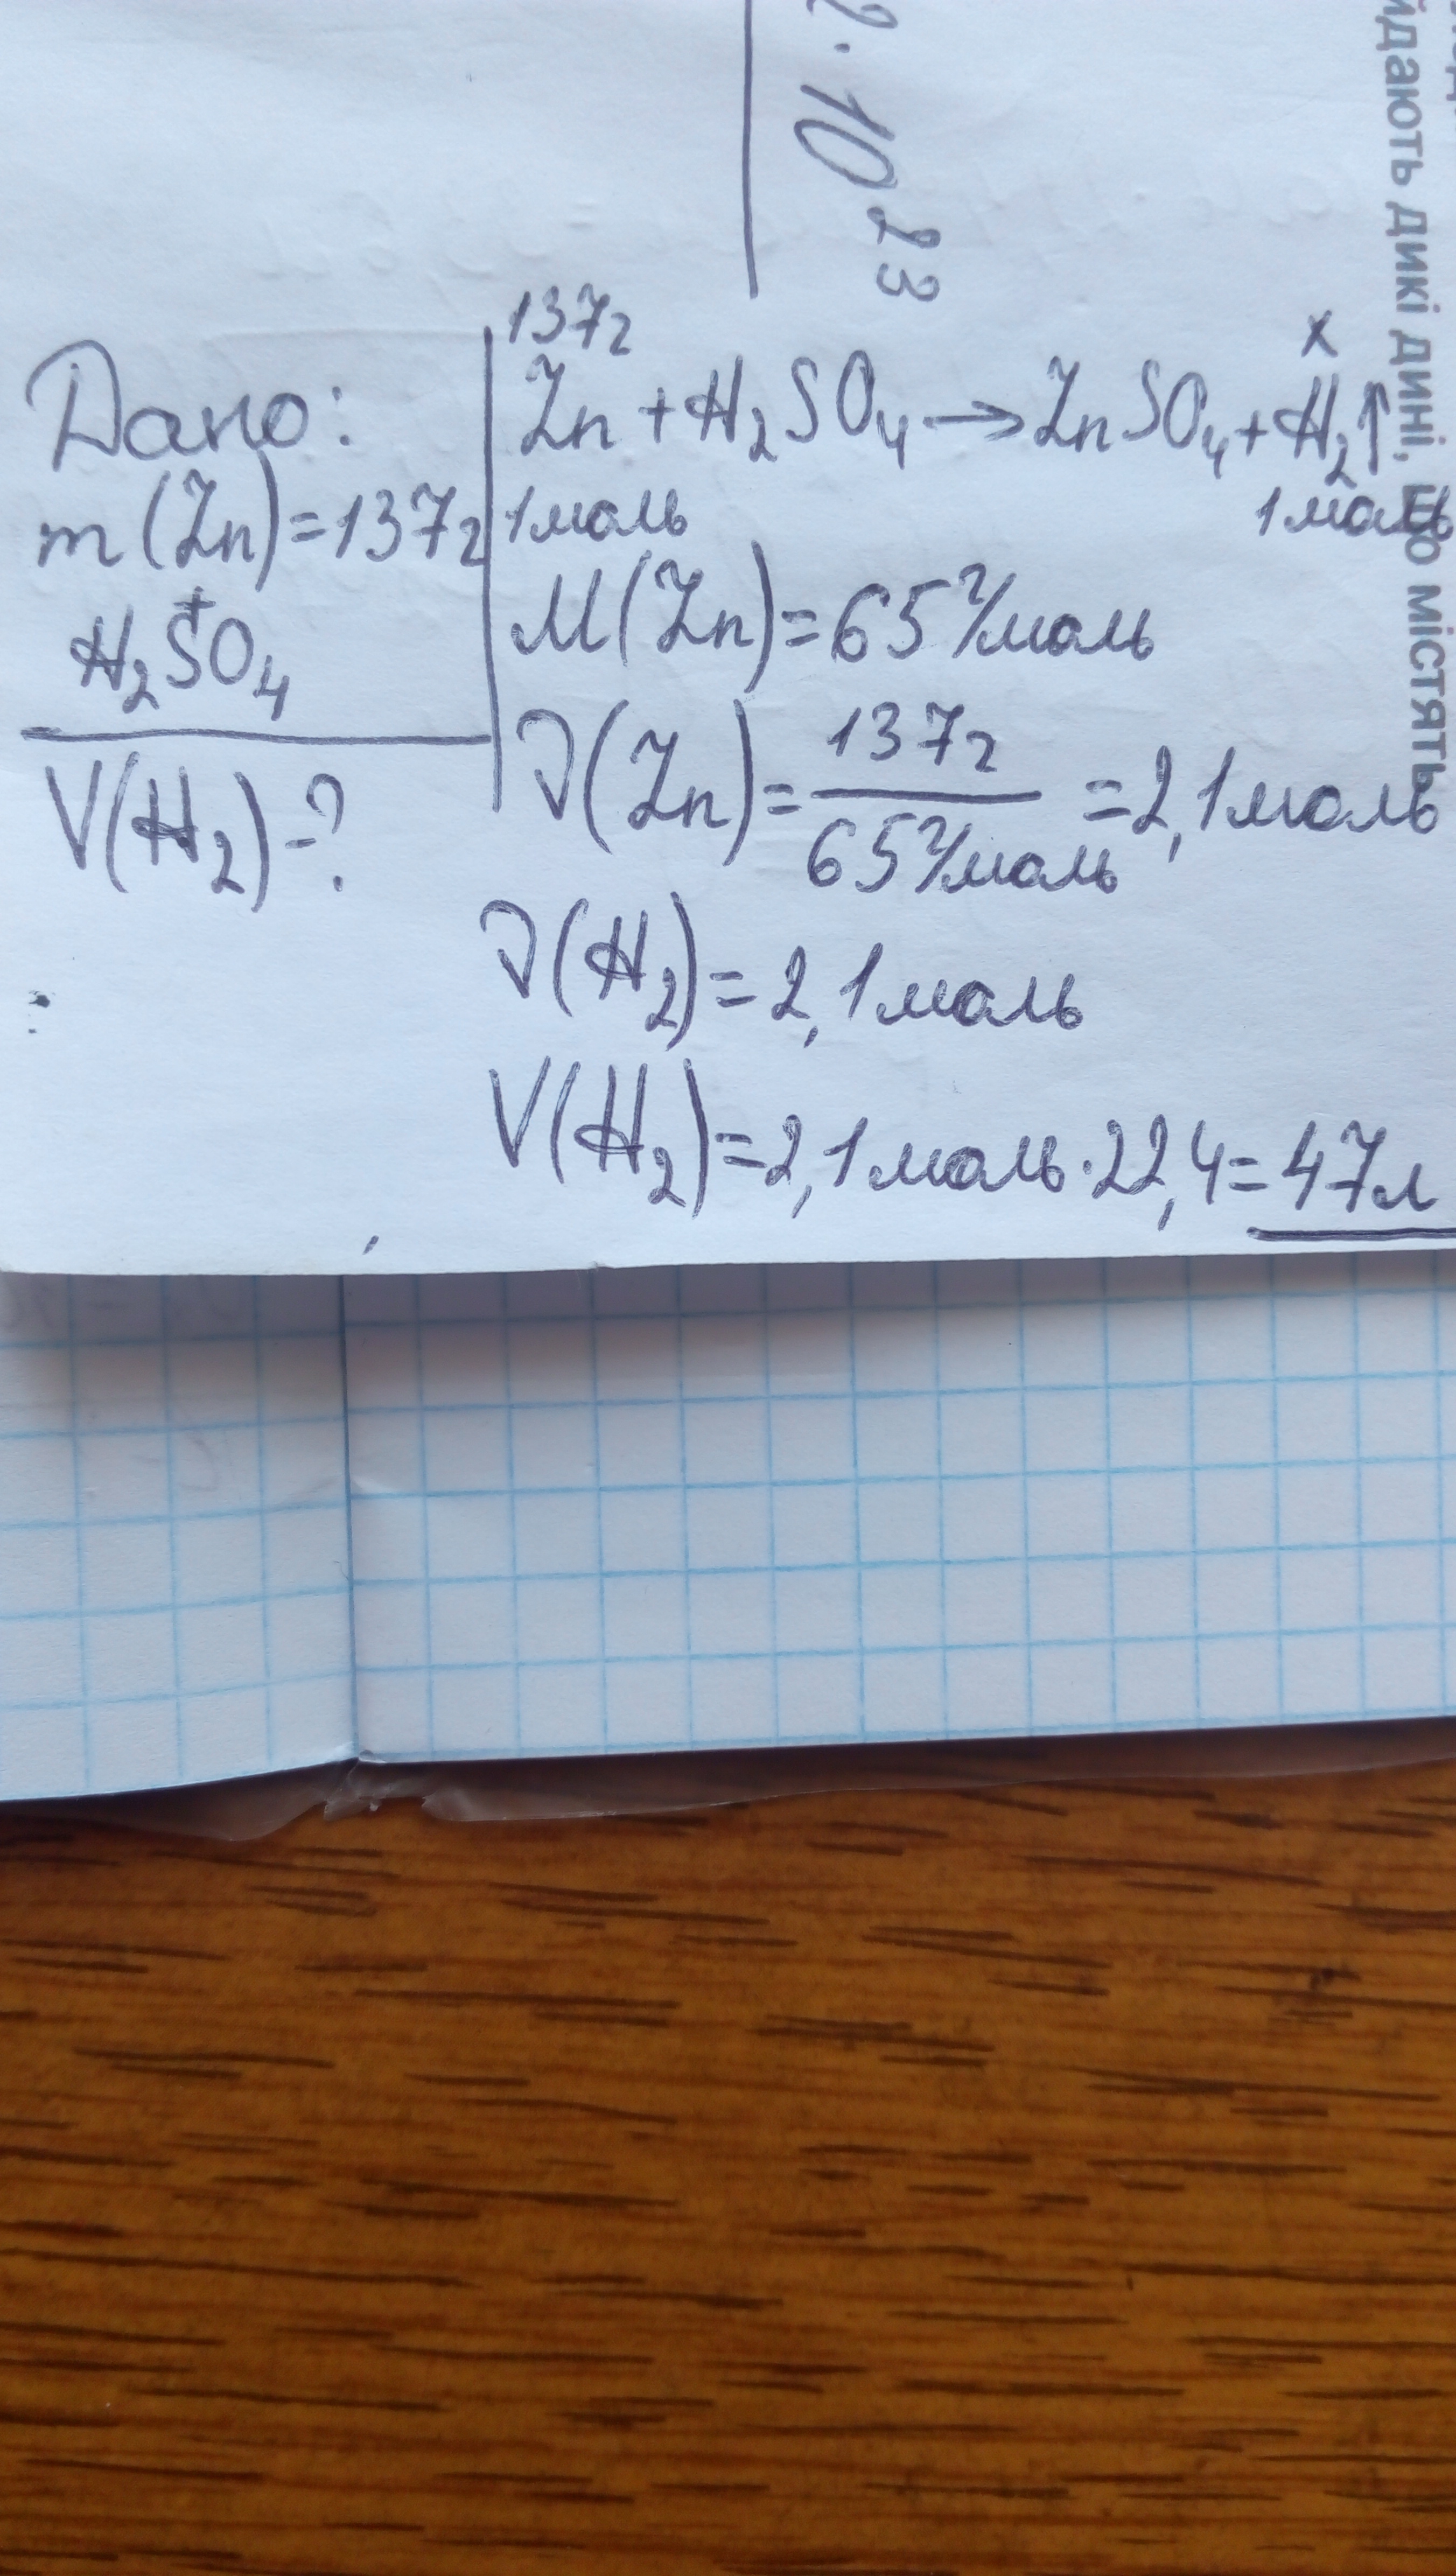 2·10²³
йдають дикі дині, що містять
Дано:
m(Zn)=137г
+
H₂SO₄
V(H₂)-?
137г x
Zn+H₂SO₄→ZnSO₄+H₂↑
1моль 1моль
M(Zn)=65г/моль
ν(Zn)=137г/65г/моль=2,1моль
ν(H₂)=2,1моль
V(H₂)=2,1моль·22,4=47л